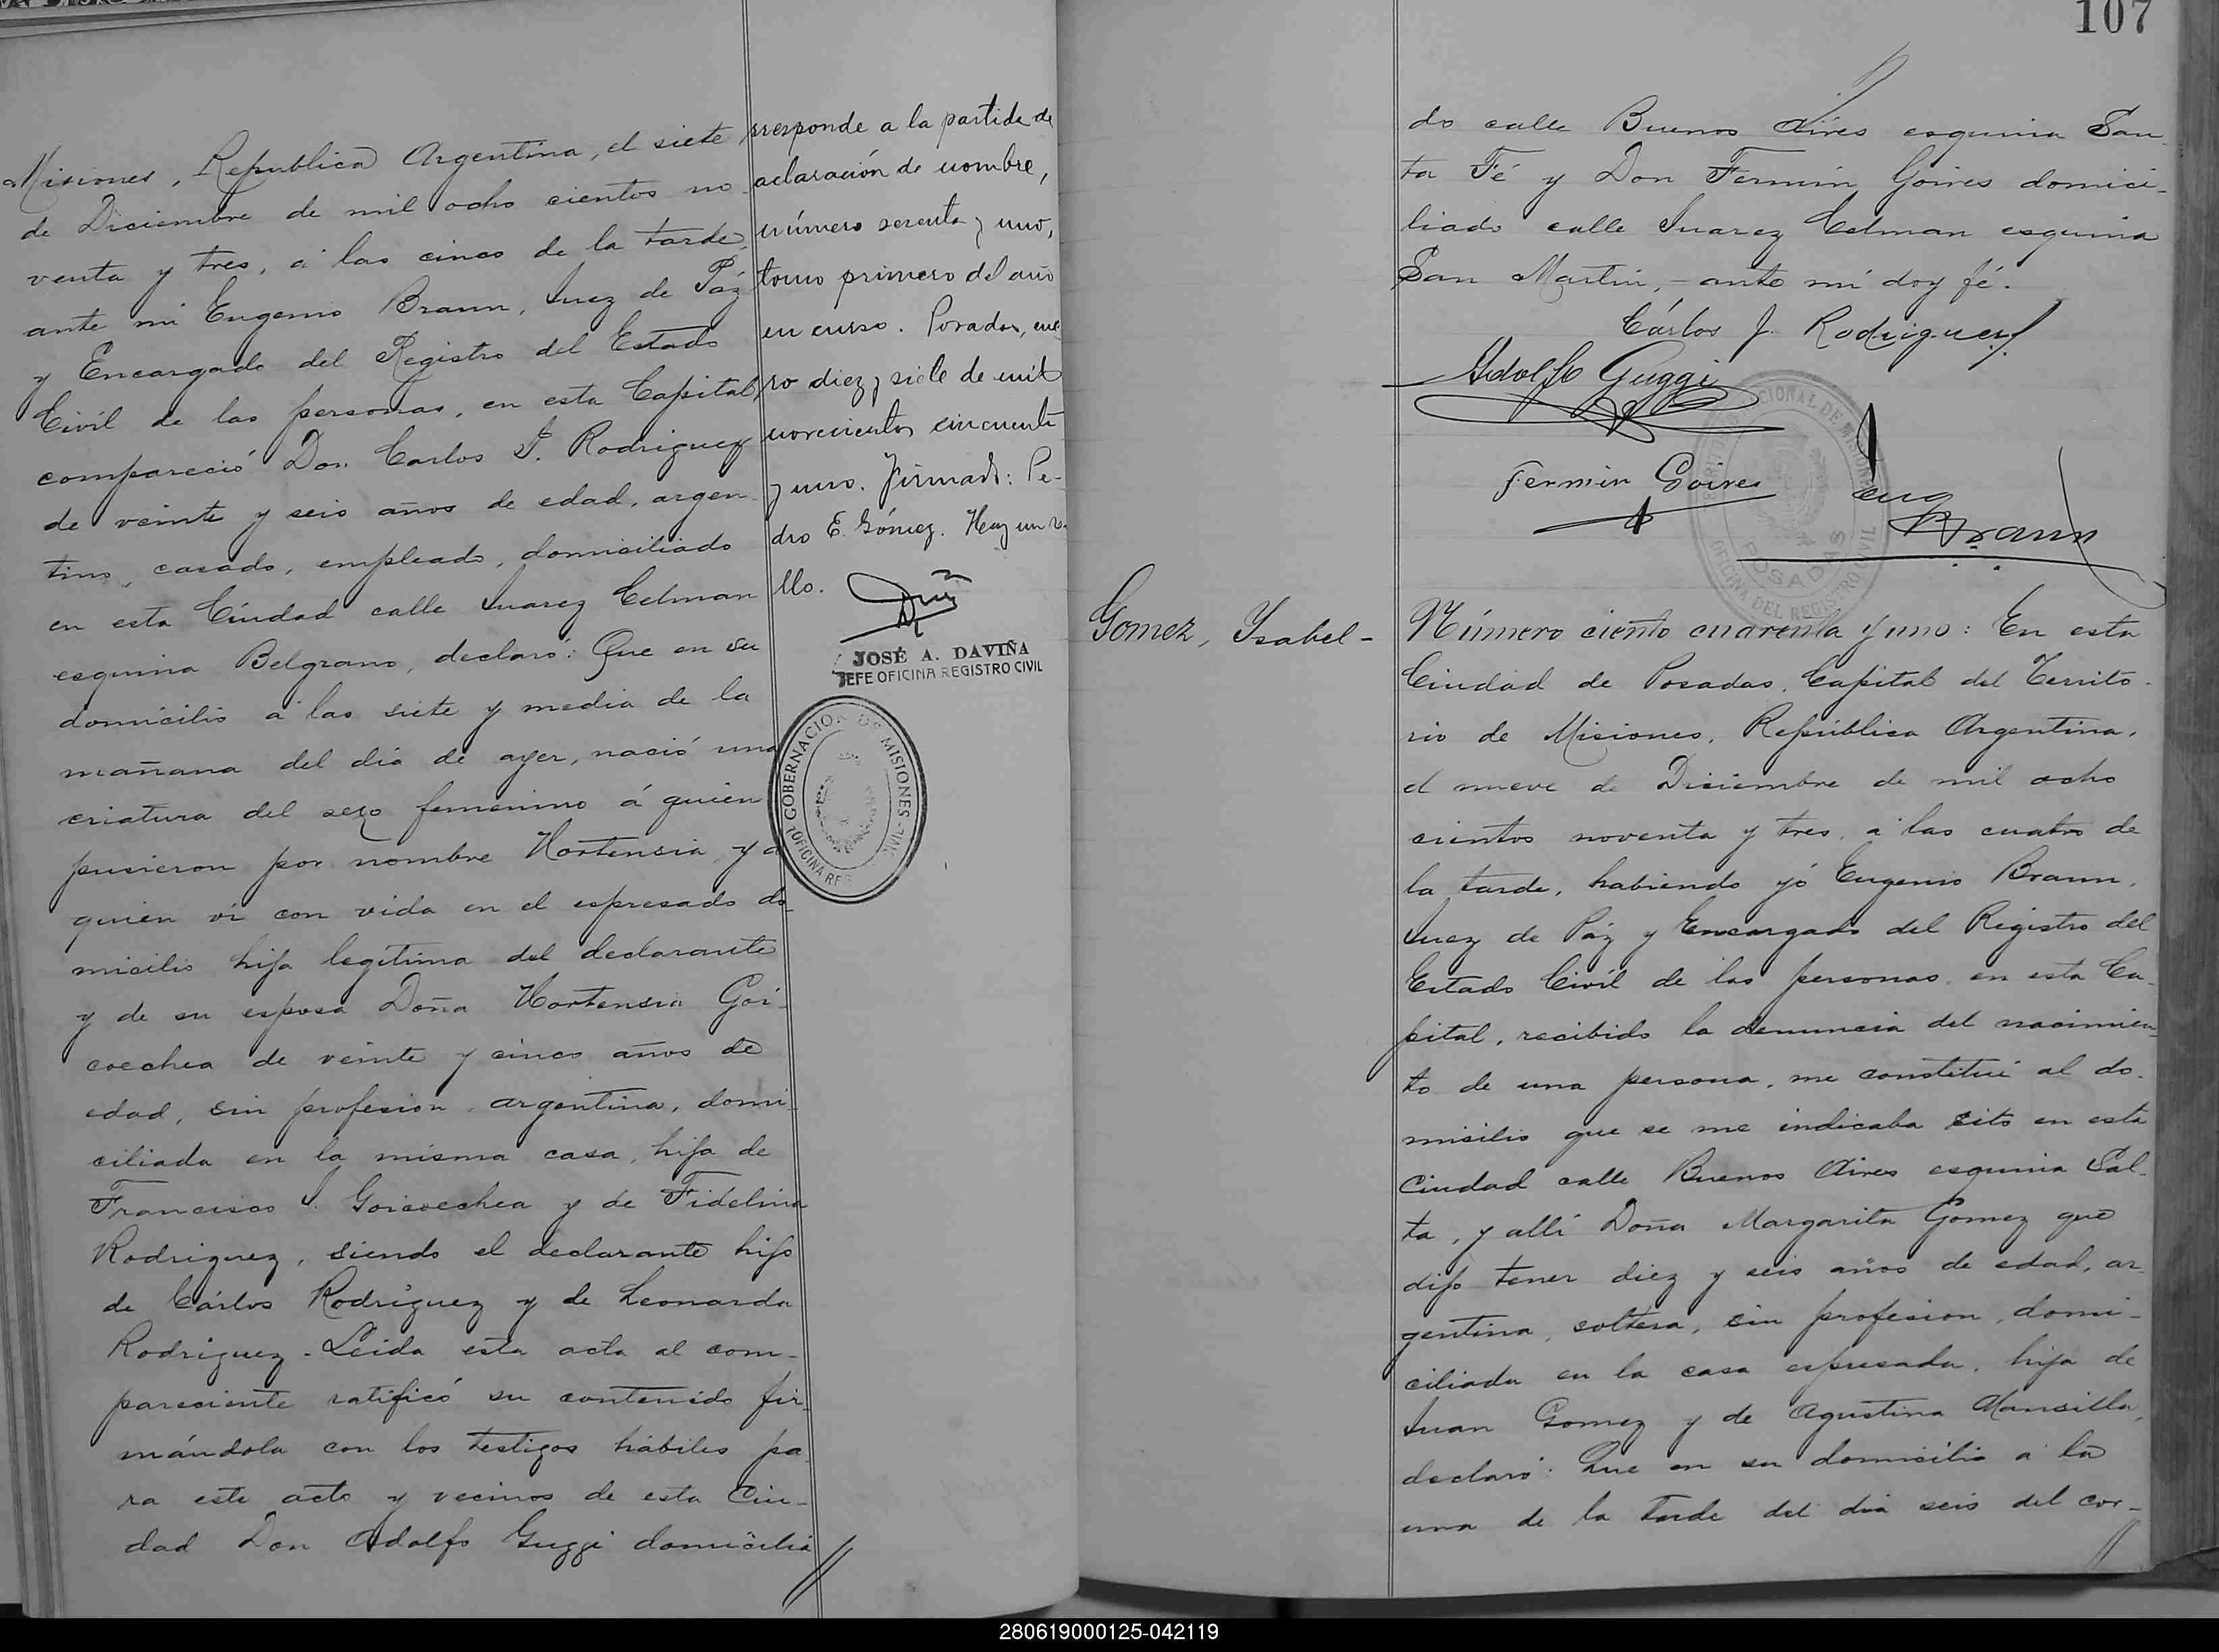 Misiones, Republica Argentina, el siete
de Diciembre de mil ocho cientos no
venta y tres, á las cinco de la tarde,
ante mi Eugenio Braun, Juez de Páz
y Encargado del Registro del Estado
Civíl de las personas, en esta Capital,
compareció Don Carlos J. Rodriguez
de veinte y seis años de edad, argen
tino, casado, empleado, domisiliado
en esta Ciudad calle Juarez Celman
esquina Belgrano, declaró: Que en su
domicilio á las siete y media de la
mañana del dia de ayer, nació una
criatura del sexo femenino á quien
pusieron por nombre Hortensia y á
quien ví con vida en el espresado do_
misilio hija legítima del declarante
y de su esposa Doña Hortensia Goi_
coechea de veinte y cinco años de
edad, sin profesion, argentina, domi_
ciliada en la misma casa, hija de
Francisco J. Goicoechea y de Fidelina
Rodriguez, siendo el declarante hijo
de Cárlos Rodríguez y de Leonarda
Rodriguez - Leida esta acta al com_
pareciente ratificó su contenido fir_
mándola con los testigos hábiles pa
ra este acto y vecinos de esta Ciu_
dad Don Adolfo Guggi domicilia
rresponde a la partida de
aclaración de nombre,
número setenta y uno,
tomo primero del año
en curso. Posadas, ene
ro diez y siete de mil
novecientos cincuenta
y uno. Firmado: Pe-
dro E. Gómez. Hay un se
llo.
JOSÉ A. DAVIÑA
JEFE OFICINA REGISTRO CIVIL
GOBERNACION DE MISIONES
107
do calle Buenos Aires esquina San_
ta Fé y Don Fermin Goires domici_
liado calle Juarez Celman esquina
San Martin, - ante mí doy fé.
Cárlos J. Rodriguez
Adolfo Guggi
Fermin Goires
Eug Braun
POSADAS
OFICINA DEL REGISTRO CIVIL
Gomez, Ysabel -
Número ciento cuarenta y uno: En esta
Ciudad de Posadas, Capital del Territo_
rio de Misiones, República Argentina,
el nueve de Diciembre de mil ocho
cientos noventa y tres, á las cuatro de
la tarde, habiendo yó Eugenio Braun,
Juez de Páz y Encargado del Registro del
Estado Civíl de las personas, en esta Ca_
pital, recibido la denuncia del nacimien_
to de una persona, me constituí al do_
misilio que se me indicaba sito en esta
Ciudad calle Buenos Aires esquina Sal_
ta, y allí Doña Margarita Gomez que
dijo tener diez y seis años de edad, ar_
gentina, soltera, sin profesion, domi_
ciliada en la casa espresada, hija de
Juan Gomez y de Agustina Mansilla,
declaró: Que en su domicilio á la
una de la tarde del dia seis del cor_
280619000125-042119